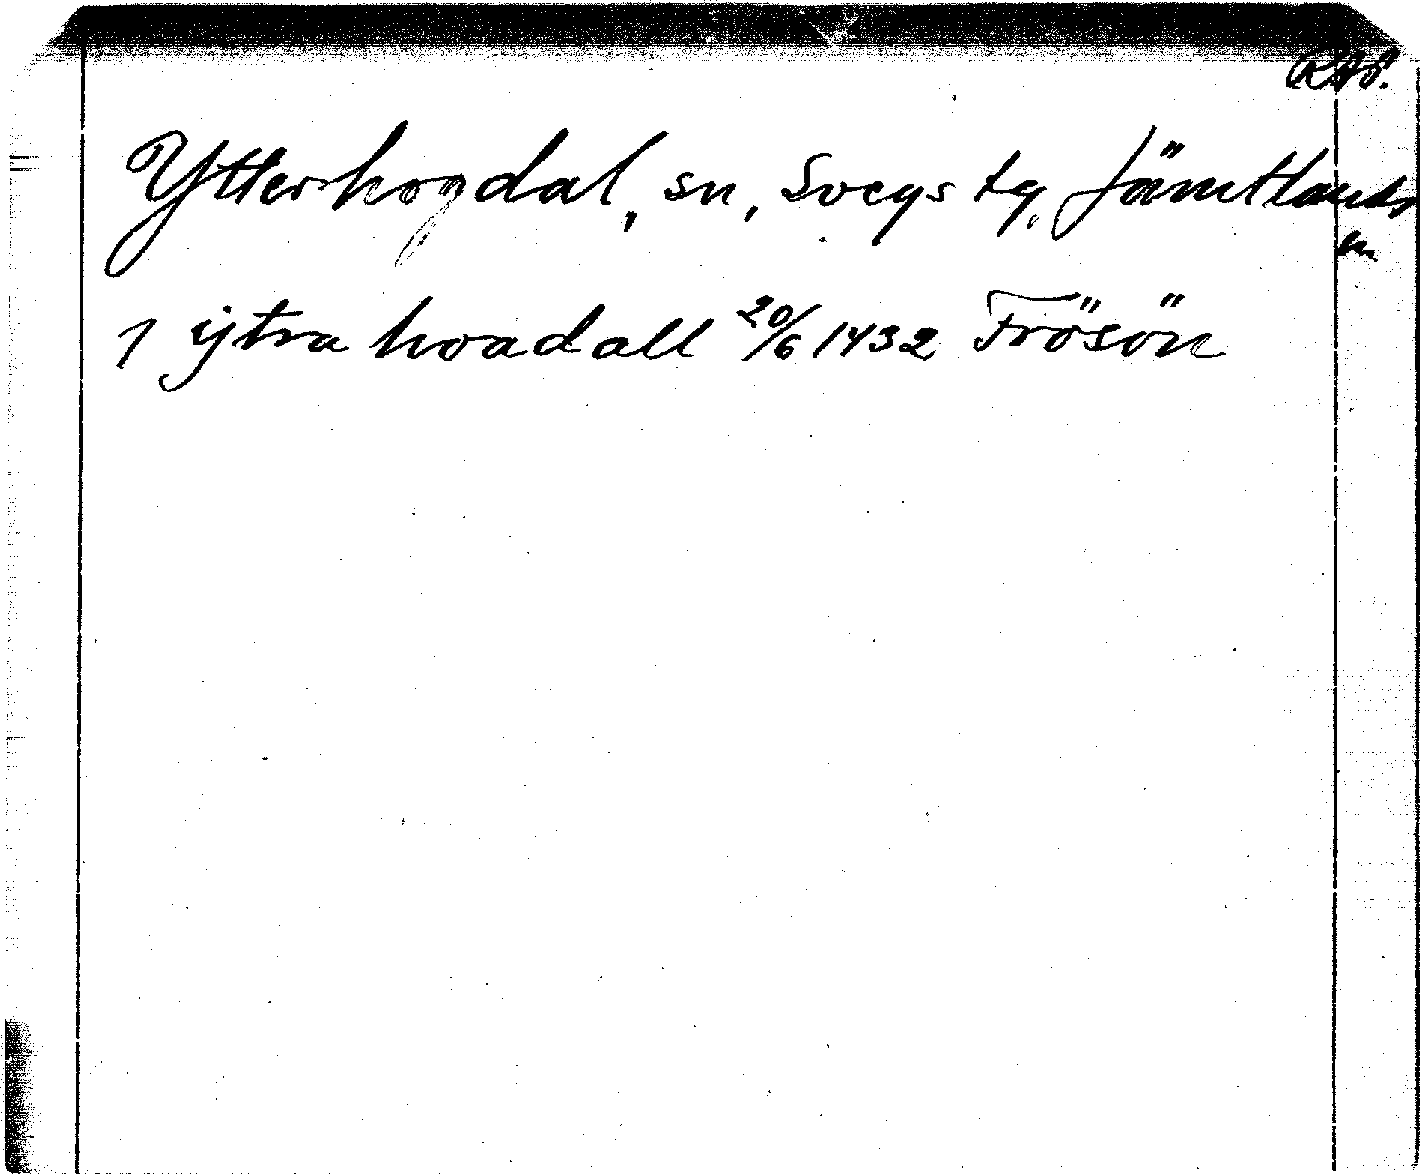 RAÖ.
Ytterhogdal, sn, Svegs tg, Jämtlands
ln
1 ÿtra hoadall 20/6 1432 Frösön